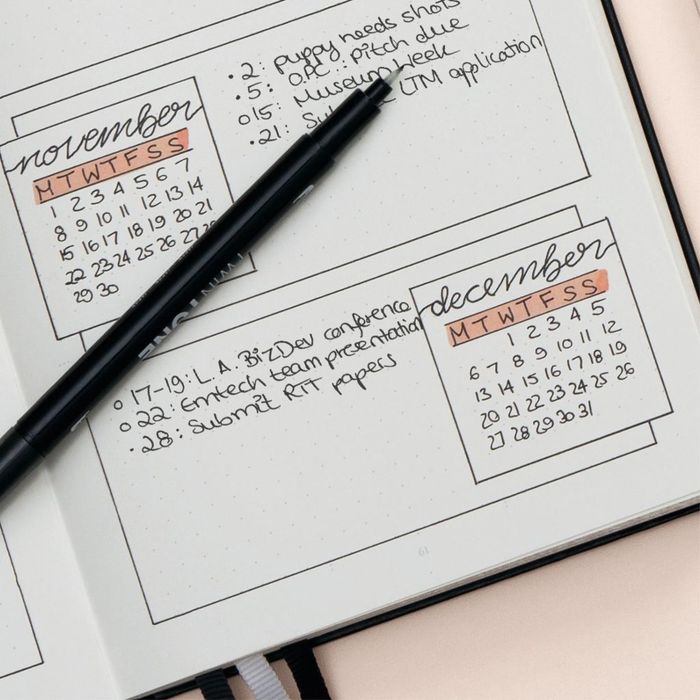 • 2: puppy needs shots
• 5: O.P.C.: pitch due
o 15: Museum Week
• 21: LTM application
november
M T W T F S S
1 2 3 4 5 6 7
8 9 10 11 12 13 14
15 16 17 18 19 20 21
22 23 24 25 26 27 28
29 30
december
M T W T F S S
1 2 3 4 5
6 7 8 9 10 11 12
13 14 15 16 17 18 19
20 21 22 23 24 25 26
27 28 29 30 31
o 17-19: L.A. BizDev conference
o 22: Emtech team presentation
• 28: Submit RIT papers
TWIN TONE
61